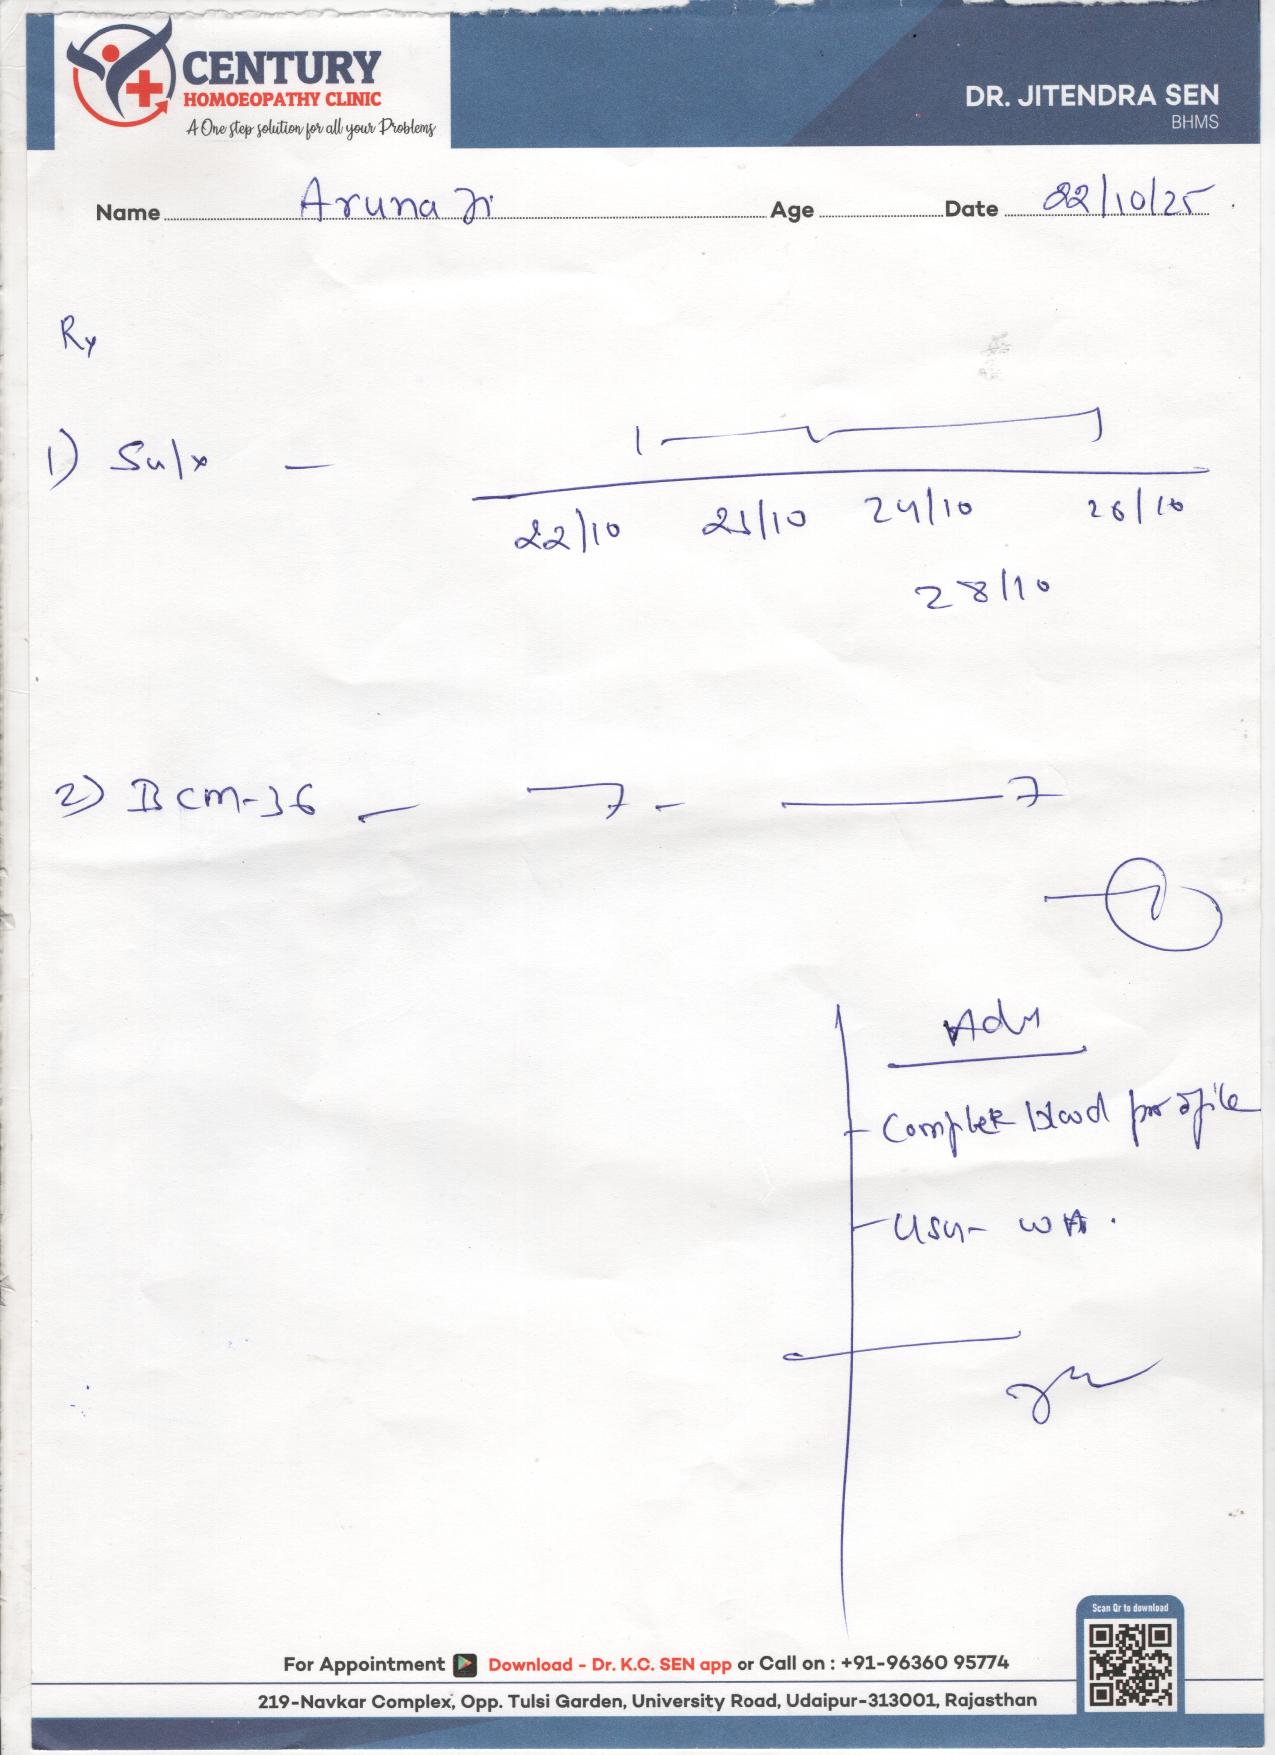 CENTURY
HOMOEOPATHY CLINIC
A One step solution for all your Problems
DR. JITENDRA SEN
BHMS
Name Aruna Ji Age Date 22/10/25
Rx
1) Sulx —
22/10 23/10 24/10 26/10
28/10
2) BCM-36 — 7 — 7
Adv
- Complete blood profile
- USG - WA.
Scan Qr to download
For Appointment Download - Dr. K.C. SEN app or Call on : +91-96360 95774
219-Navkar Complex, Opp. Tulsi Garden, University Road, Udaipur-313001, Rajasthan